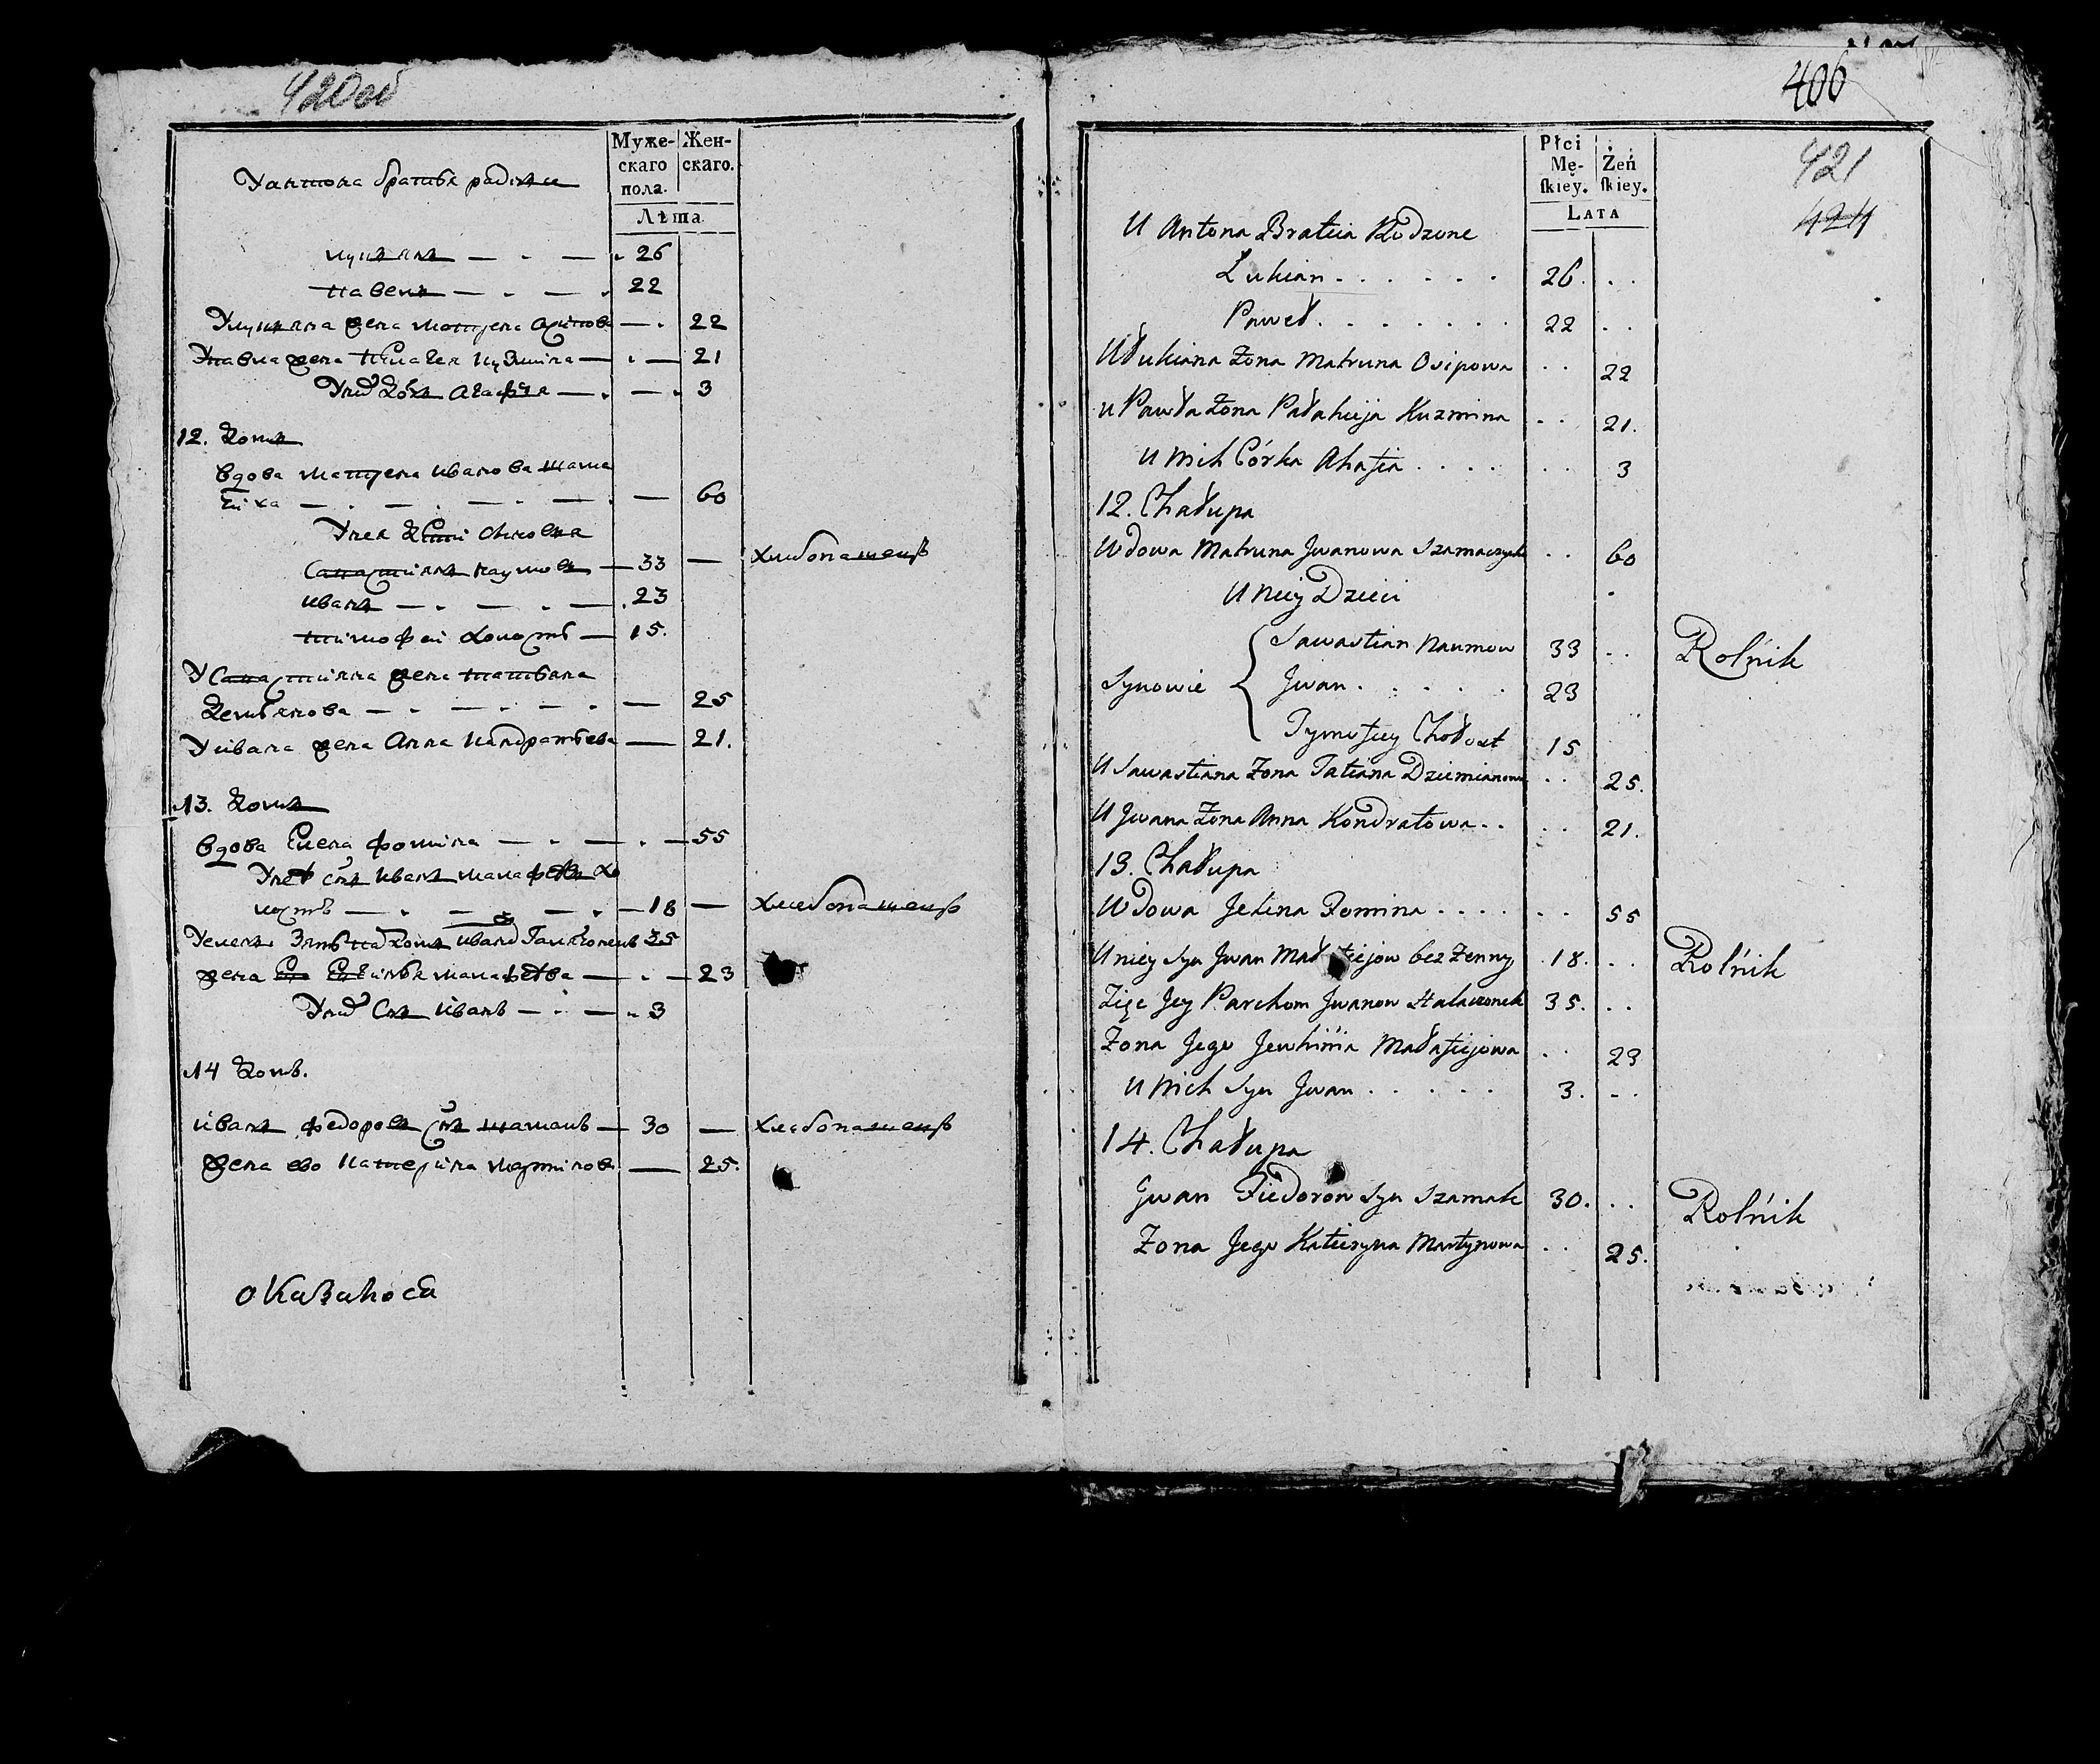 420об
Муже-
скаго
пола.
Жен-
скаго.
Лѣта
Уантона братья родние
лукянъ — . — . 26
павелъ — . — . 22
Улукяна жена матрена — . 22
Упавла жена пелагея кузмина — . — 21
дочь агафея — . — . 3
12. домъ
вдова матрена иванова
— . — . — 60
Унея дети
наумовъ — 33 — хлебопашецъ
иванъ — . — . — . 23
тимофей холостъ — 15.
жена татьяна
демьянова — . — . — . — 25
Уивана жена анна кандратьева — 21.
13. домъ
вдова елена фомина — . — . — 55
сынъ иванъ хо
лостъ — . — . — 18 — хлебопашецъ
зять иванъ 35
жена его — . — 23
сынъ иванъ — . — . 3
14 домъ.
иванъ федоровъ сынъ шаманъ — 30 — хлебопашецъ
жена ево катерина мартинова — 25.
оказалося
406
421
424
Płci
Mę-
ſkiey.
Żeń
ſkiey.
LATA
U Antona Bratcia Rodzone
Łukian . . . . . . 26. . .
Paweł . . . . . . . 22 . .
U Łukiana Zona Matruna Osipowa . . 22
U Pawła Zona Pałahieja Kuzmina . . 21.
U Nich Córka Ahafia . . . . . . 3
12. Chałupa
Wdowa Matruna Jwanowa . . 60
U Niey Dzieci
Synowie
Sawastian Naumow 33 . . Rolńik
Jwan . . . . . 23
Tymofiey Chołost 15
U Sawastiana Zona Tatiana Dziemianowa . . 25.
U Jwana Zona Anna Kondratowa . . . . 21.
13. Chałupa
Wdowa Jelina Fomina . . . . . . 55
U niey Syn Jwan bez Zenny 18. . . Rolńik
Zięc Jey Parchom Jwanow 35. . .
Zona Jego Jewhinia Małafiejowa . . 23
U Nich Syn Jwan . . . . . 3. . .
14. Chałupa
Jwan Fiedorow Syn Szamak 30. . . Rolńik
Zona Jego Katierzyna Martynowa . . 25.